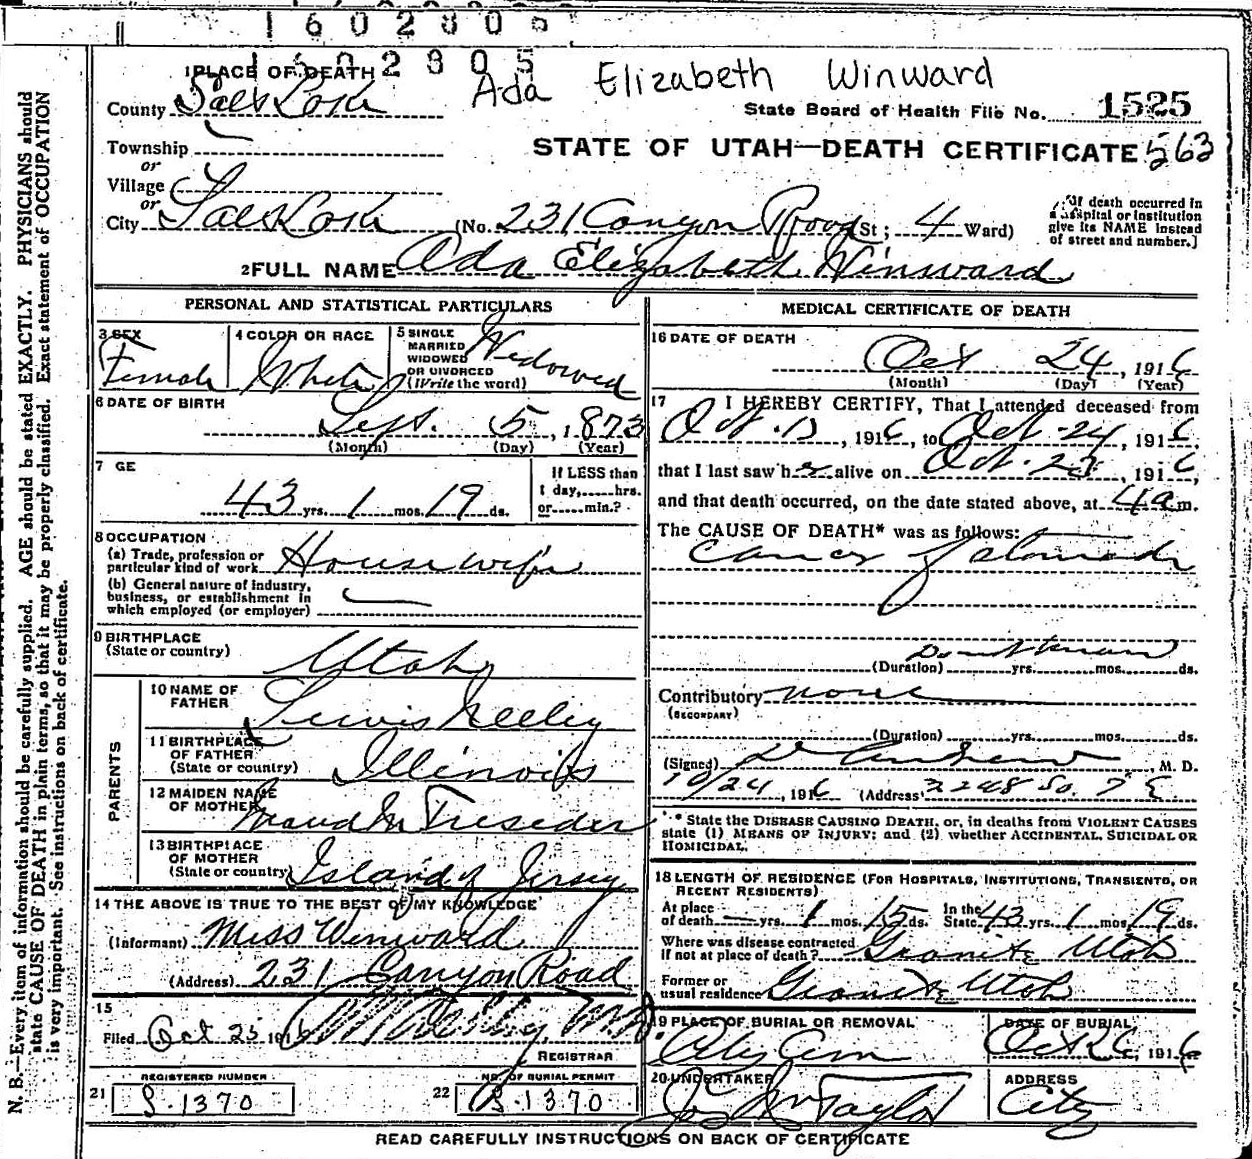 1602806
1602805
Ada Elizabeth Winward
1 PLACE OF DEATH
County Salt Lake
State Board of Health File No. 1525
Township
or
Village
or
STATE OF UTAH—DEATH CERTIFICATE 563
City Salt Lake (No. 231 Canyon Road St; 4 Ward)
[If death occurred in
a Hospital or institution
give its NAME instead
of street and number.]
2 FULL NAME Ada Elizabeth Winward
PERSONAL AND STATISTICAL PARTICULARS
3 SEX
Female
4 COLOR OR RACE
White
5 SINGLE
MARRIED
WIDOWED
OR DIVORCED
(Write the word)
Widowed
6 DATE OF BIRTH
Sept. 5, 1873
(Month) (Day) (Year)
7 GE
43 yrs. 1 mos. 19 ds.
If LESS than
1 day,.....hrs.
or.....min.?
8 OCCUPATION
(a) Trade, profession or
particular kind of work Housewife
(b) General nature of industry,
business, or establishment in
which employed (or employer)
9 BIRTHPLACE
(State or country)
Utah
PARENTS
10 NAME OF
FATHER
Lewis Neeley
11 BIRTHPLACE
OF FATHER
(State or country)
Illinois
12 MAIDEN NAME
OF MOTHER
Treseder
13 BIRTHPLACE
OF MOTHER
(State or country)
Island of Jersey
14 THE ABOVE IS TRUE TO THE BEST OF MY KNOWLEDGE
(Informant) Miss Winward
(Address) 231 Canyon Road
15
Filed Oct 25 1916
REGISTRAR
REGISTERED NUMBER
21 S.1370
NO. OF BURIAL PERMIT
22 S.1370
MEDICAL CERTIFICATE OF DEATH
16 DATE OF DEATH
Oct 24, 1916
(Month) (Day) (Year)
17 I HEREBY CERTIFY, That I attended deceased from
Oct. , 1916, to Oct. 24, 1916,
that I last saw her alive on Oct. 23, 1916,
and that death occurred, on the date stated above, at 4 a m.
The CAUSE OF DEATH* was as follows:
Cancer of stomach
Dont know
(Duration) yrs. mos. ds.
Contributory none
(SECONDARY)
(Duration) yrs. mos. ds.
(Signed) M. D.
10/24, 1916 (Address) So. 7 E.
* State the DISEASE CAUSING DEATH, or, in deaths from VIOLENT CAUSES
state (1) MEANS OF INJURY; and (2) whether ACCIDENTAL, SUICIDAL OR
HOMICIDAL.
18 LENGTH OF RESIDENCE (FOR HOSPITALS, INSTITUTIONS, TRANSIENTS, OR
RECENT RESIDENTS)
At place
of death — yrs. 1 mos. 15 ds. In the
State 43 yrs. 1 mos. 19 ds.
Where was disease contracted
if not at place of death? Granite Utah
Former or
usual residence Granite Utah
19 PLACE OF BURIAL OR REMOVAL
City Cem
DATE OF BURIAL
Oct 26, 1916
20 UNDERTAKER
Jos Wm Taylor
ADDRESS
City
READ CAREFULLY INSTRUCTIONS ON BACK OF CERTIFICATE
N. B.—Every item of information should be carefully supplied. AGE should be stated EXACTLY. PHYSICIANS should
state CAUSE OF DEATH in plain terms, so that it may be properly classified. Exact statement of OCCUPATION
is very important. See instructions on back of certificate.